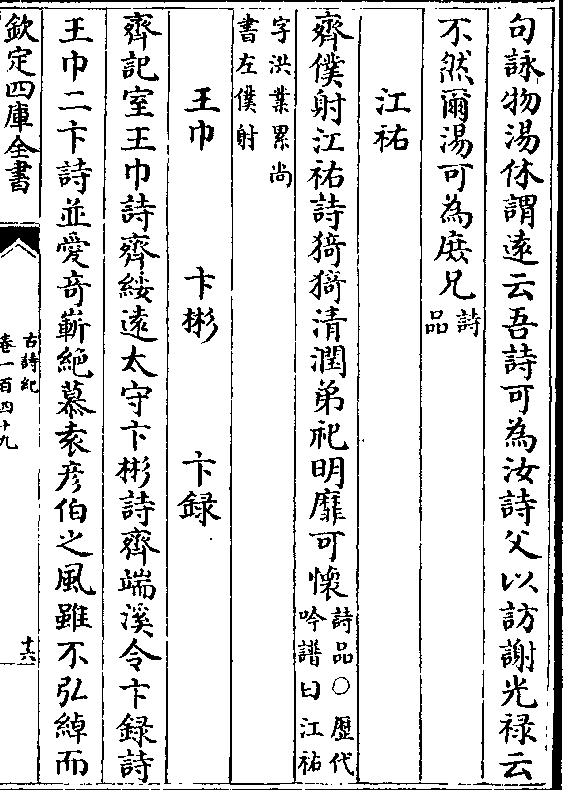 句詠物湯休謂逺云吾詩可為汝詩父以訪謝光禄云
不然爾湯可為庻兄詩品
江祐
齊僕射江祐詩猗猗清潤弟祀明靡可懐詩品○歴代吟譜曰江祐
字洪業累尚書左僕射
王巾　卞彬　卞録
齊記室王巾詩齊綏逺太守卞彬詩齊端溪令卞録詩
王巾二卞詩並愛竒嶄絶慕袁彦伯之風雖不弘綽而
欽定四庫全書
古詩紀
卷一百四十九
十六